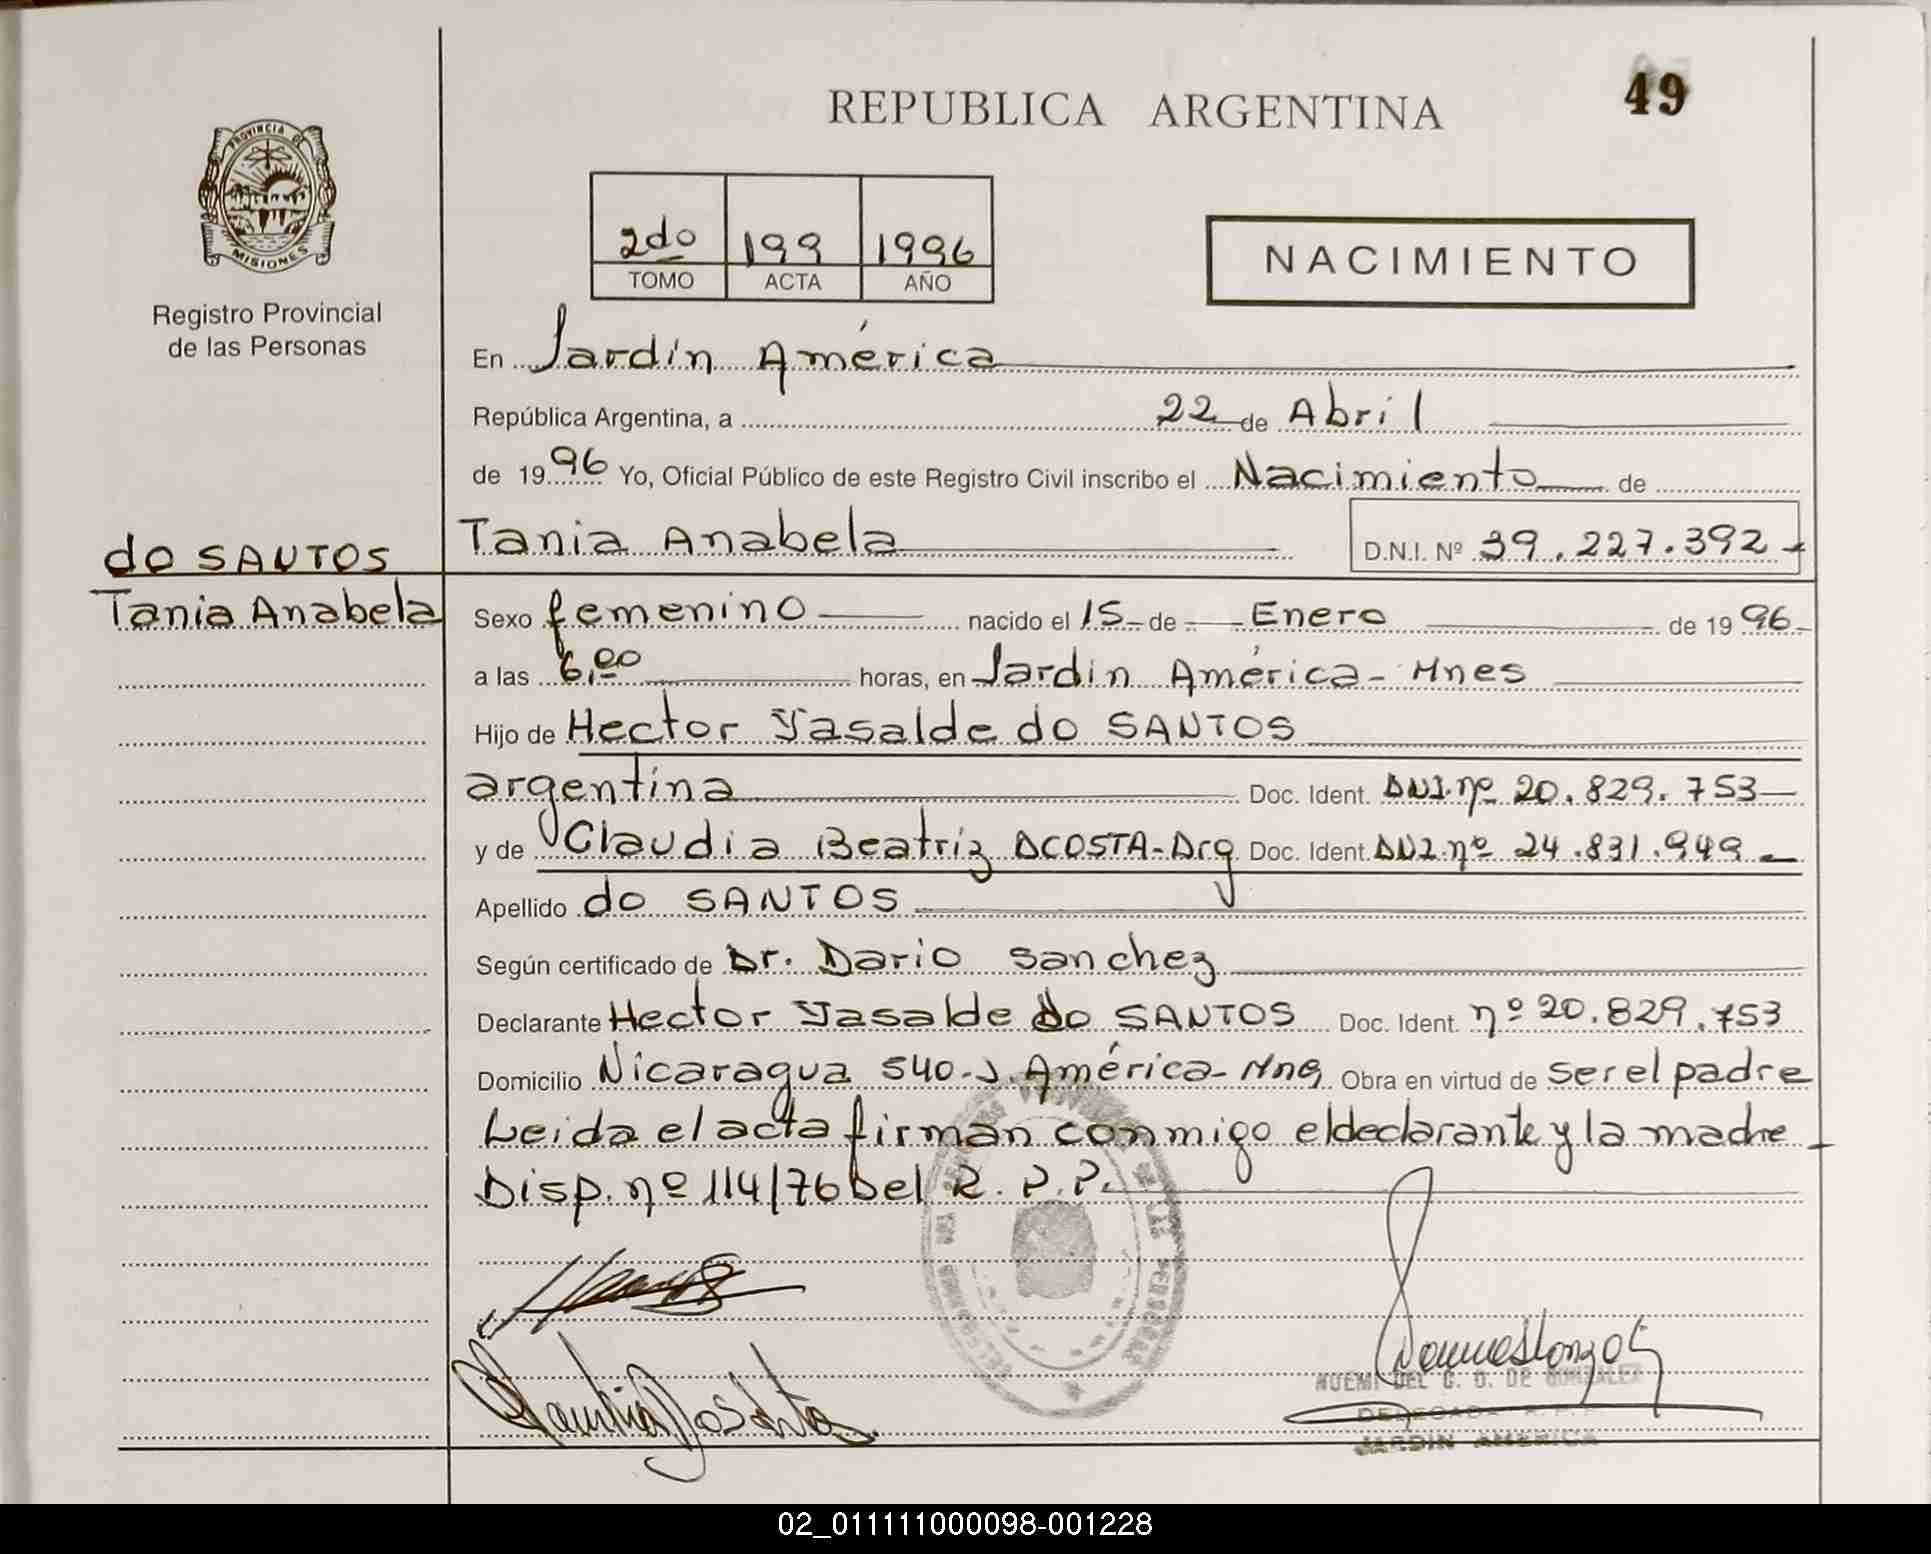 49
REPUBLICA ARGENTINA
PROVINCIA DE
MISIONES
Registro Provincial
de las Personas
2do 199 1996
TOMO ACTA AÑO
NACIMIENTO
En Jardín América
República Argentina, a 22 de Abril
de 1996 Yo, Oficial Público de este Registro Civil inscribo el Nacimiento de
do SANTOS
Tania Anabela
Tania Anabela D.N.I. Nº 39.227.392
Sexo femenino nacido el 15 de Enero de 1996
a las 6,00 horas, en Jardín América - Mnes
Hijo de Hector Yasalde do SANTOS
argentina Doc. Ident. DNI. nº 20.829.753
y de Claudia Beatriz ACOSTA - Arg Doc. Ident. DNI. nº 24.831.949
Apellido do SANTOS
Según certificado de Dr. Dario Sanchez
Declarante Hector Yasalde do SANTOS Doc. Ident. nº 20.829.753
Domicilio Nicaragua 540 - J. América - Mnes Obra en virtud de ser el padre
Leida el acta firman conmigo el declarante y la madre
Disp. nº 114/76 Del R. P. P.
DE GONZALEZ
DELEGADA R. P. P.
JARDIN AMERICA
02_011111000098-001228